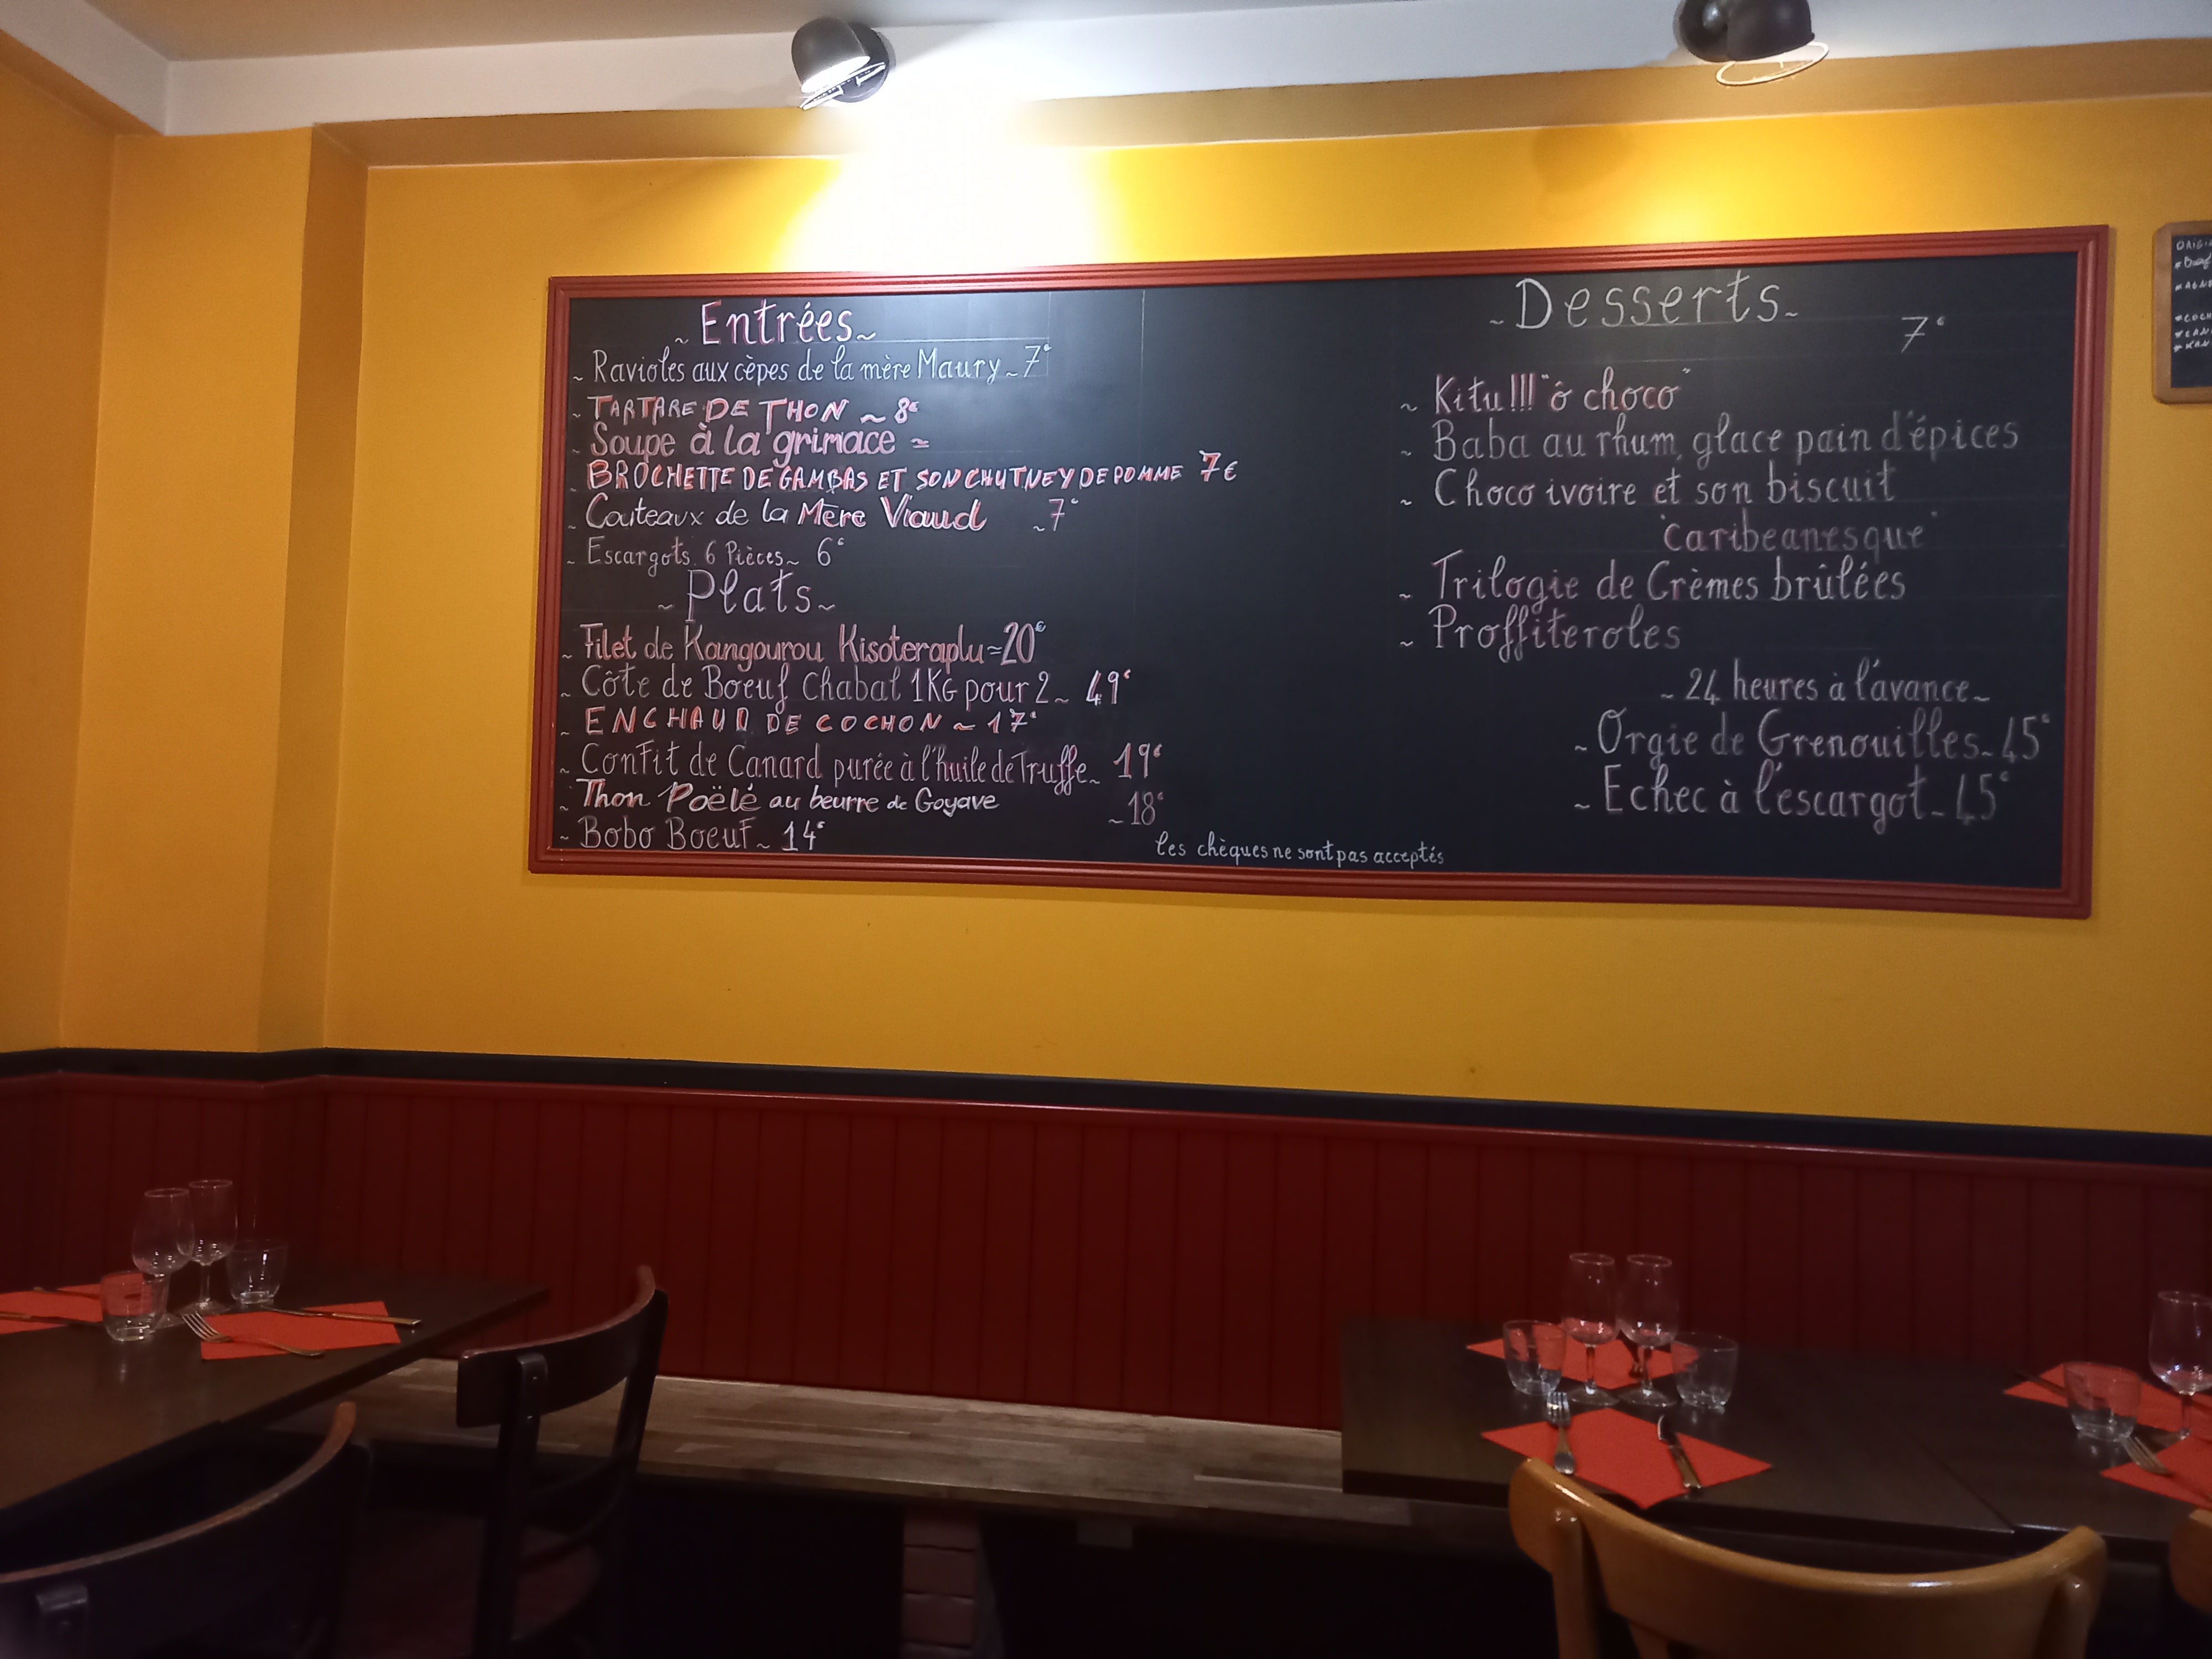 ~ Entrées ~
~ Ravioles aux cèpes de la mère Maury ~ 7€
~ TARTARE DE THON ~ 8€
~ Soupe à la grimace ~
~ BROCHETTE DE GAMBAS ET SON CHUTNEY DE POMME 7€
~ Couteaux de la Mère Viaud ~ 7€
~ Escargots 6 Pièces ~ 6€
~ Plats ~
~ Filet de Kangourou Kisoteraplu ~ 20€
~ Côte de Boeuf Chabal 1KG pour 2 ~ 49€
~ ENCHAUD DE COCHON ~ 17€
~ Confit de Canard purée à l'huile de Truffe ~ 19€
~ Thon Poëlé au beurre de Goyave ~ 18€
~ Bobo Boeuf ~ 14€
les chèques ne sont pas acceptés
~ Desserts ~
7€
~ Kitu!!! "ô choco"
~ Baba au rhum, glace pain d'épices
~ Choco ivoire et son biscuit
"Caribeanesque"
~ Trilogie de Crèmes brûlées
~ Proffiteroles
~ 24 heures à l'avance ~
~ Orgie de Grenouilles ~ 45€
~ Echec à l'escargot ~ 45€